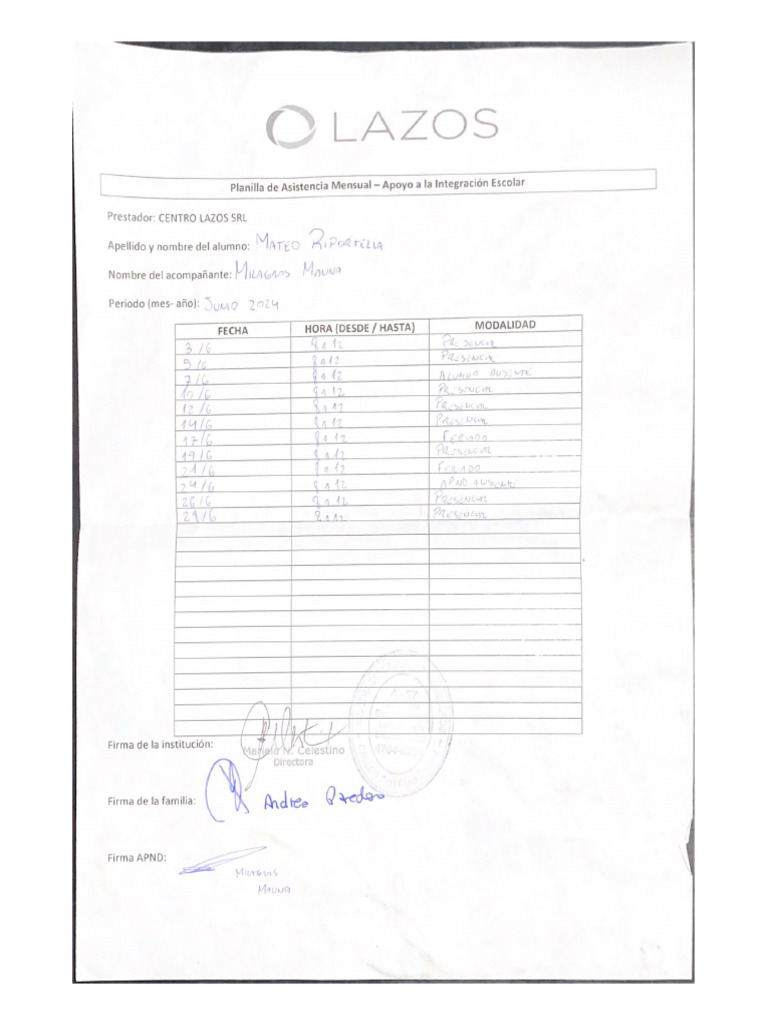 LAZOS
Planilla de Asistencia Mensual – Apoyo a la Integración Escolar
Prestador: CENTRO LAZOS SRL
Apellido y nombre del alumno: MATEO RIPORTELLA
Nombre del acompañante: MILAGROS MAUNA
Periodo (mes- año): JUNIO 2024
FECHA HORA (DESDE / HASTA) MODALIDAD
3/6 8 a 12 PRESENCIAL
5/6 8 a 12 PRESENCIAL
7/6 8 a 12 ALUMNO AUSENTE
10/6 8 a 12 PRESENCIAL
12/6 8 a 12 PRESENCIAL
14/6 8 a 12 PRESENCIAL
17/6 8 a 12 FERIADO
19/6 8 a 12 PRESENCIAL
21/6 8 a 12 FERIADO
24/6 8 a 12 APND AUSENTE
26/6 8 a 12 PRESENCIAL
8 a 12 PRESENCIAL
Firma de la institución:
Mariela N. Celestino
Directora
Firma de la familia: Andrea
Firma APND:
MILAGROS
MAUNA